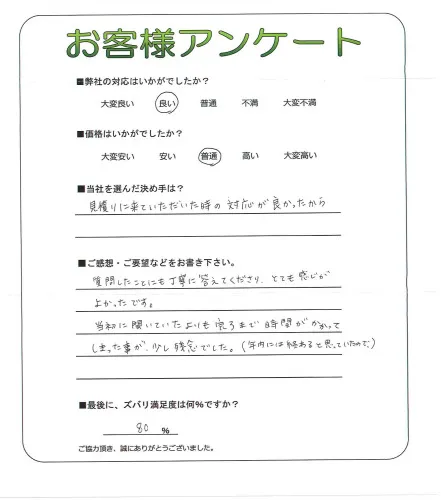 お客様アンケート
■弊社の対応はいかがでしたか？
大変良い 良い 普通 不満 大変不満
■価格はいかがでしたか？
大変安い 安い 普通 高い 大変高い
■当社を選んだ決め手は？
見積りに来ていただいた時の対応が良かったから
■ご感想・ご要望などをお書き下さい。
質問したことにも丁寧に答えてくださり、とても感じが
よかったです。
当初に聞いていたよりも完了まで時間がかかって
しまった事が、少し残念でした。(年内には終わると思っていたので)
■最後に、ズバリ満足度は何％ですか？
80 ％
ご協力頂き、誠にありがとうございました。